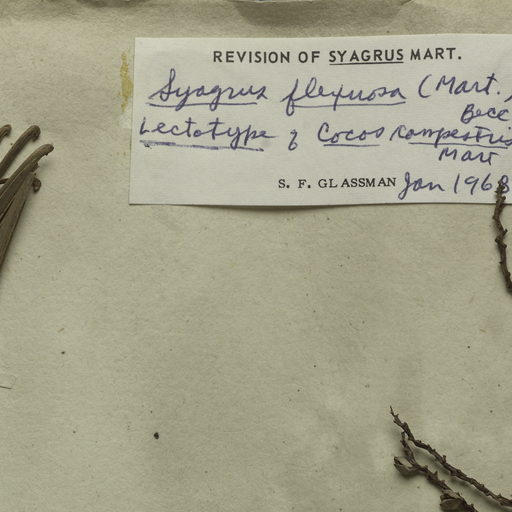 REVISION OF SYAGRUS MART.
Syagrus flexuosa (Mart.)
Becc
Lectotype of Cocos campestris
Mart
S. F. GLASSMAN Jan 1968